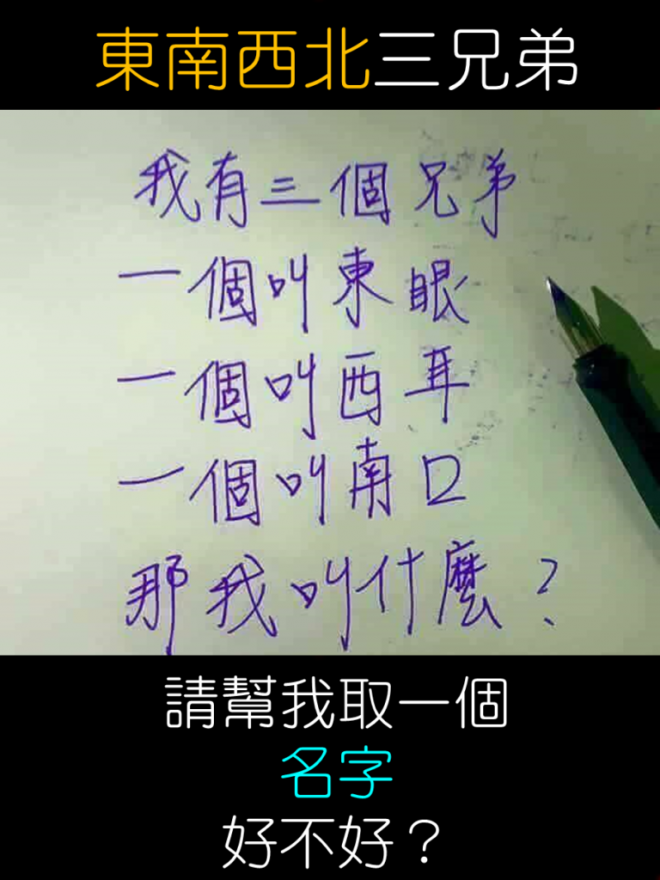 東南西北三兄弟
我有三個兄弟
一個叫東眼
一個叫西耳
一個叫南口
那我叫什麼?
請幫我取一個
名字
好不好?